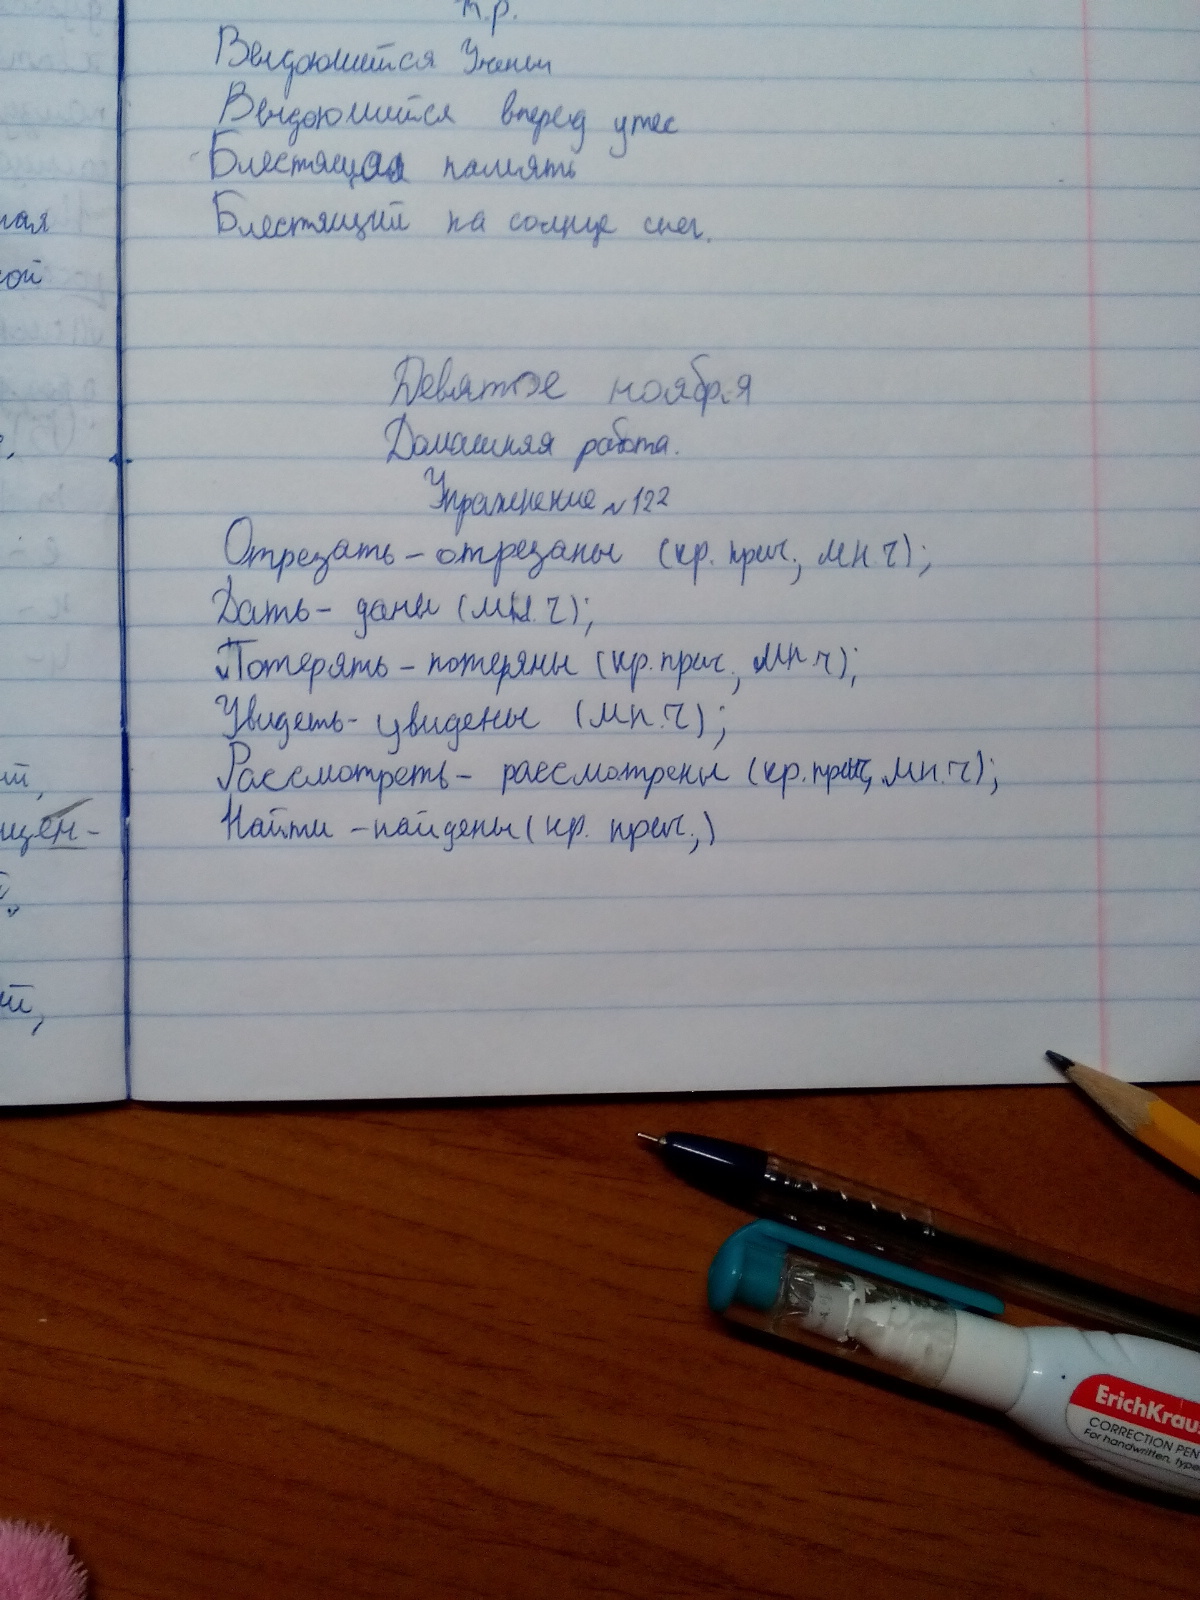 п.р.
Выдающийся Ученый
Выдающийся вперед утес
Блестящая память
Блестящий на солнце снег.
Девятое ноября
Домашняя работа.
Упражнение №122
Отрезать – отрезаны (кр. прич., мн.ч);
Дать – даны (мн.ч);
Потерять – потеряны (кр. прич., мн.ч);
Увидеть – увидены (мн.ч);
Рассмотреть – рассмотрены (кр. прич, мн.ч);
Найти – найдены (кр. прич.,)
ная
ой
ий,
щен-
ErichKraus
CORRECTION PEN
For handwritten, type